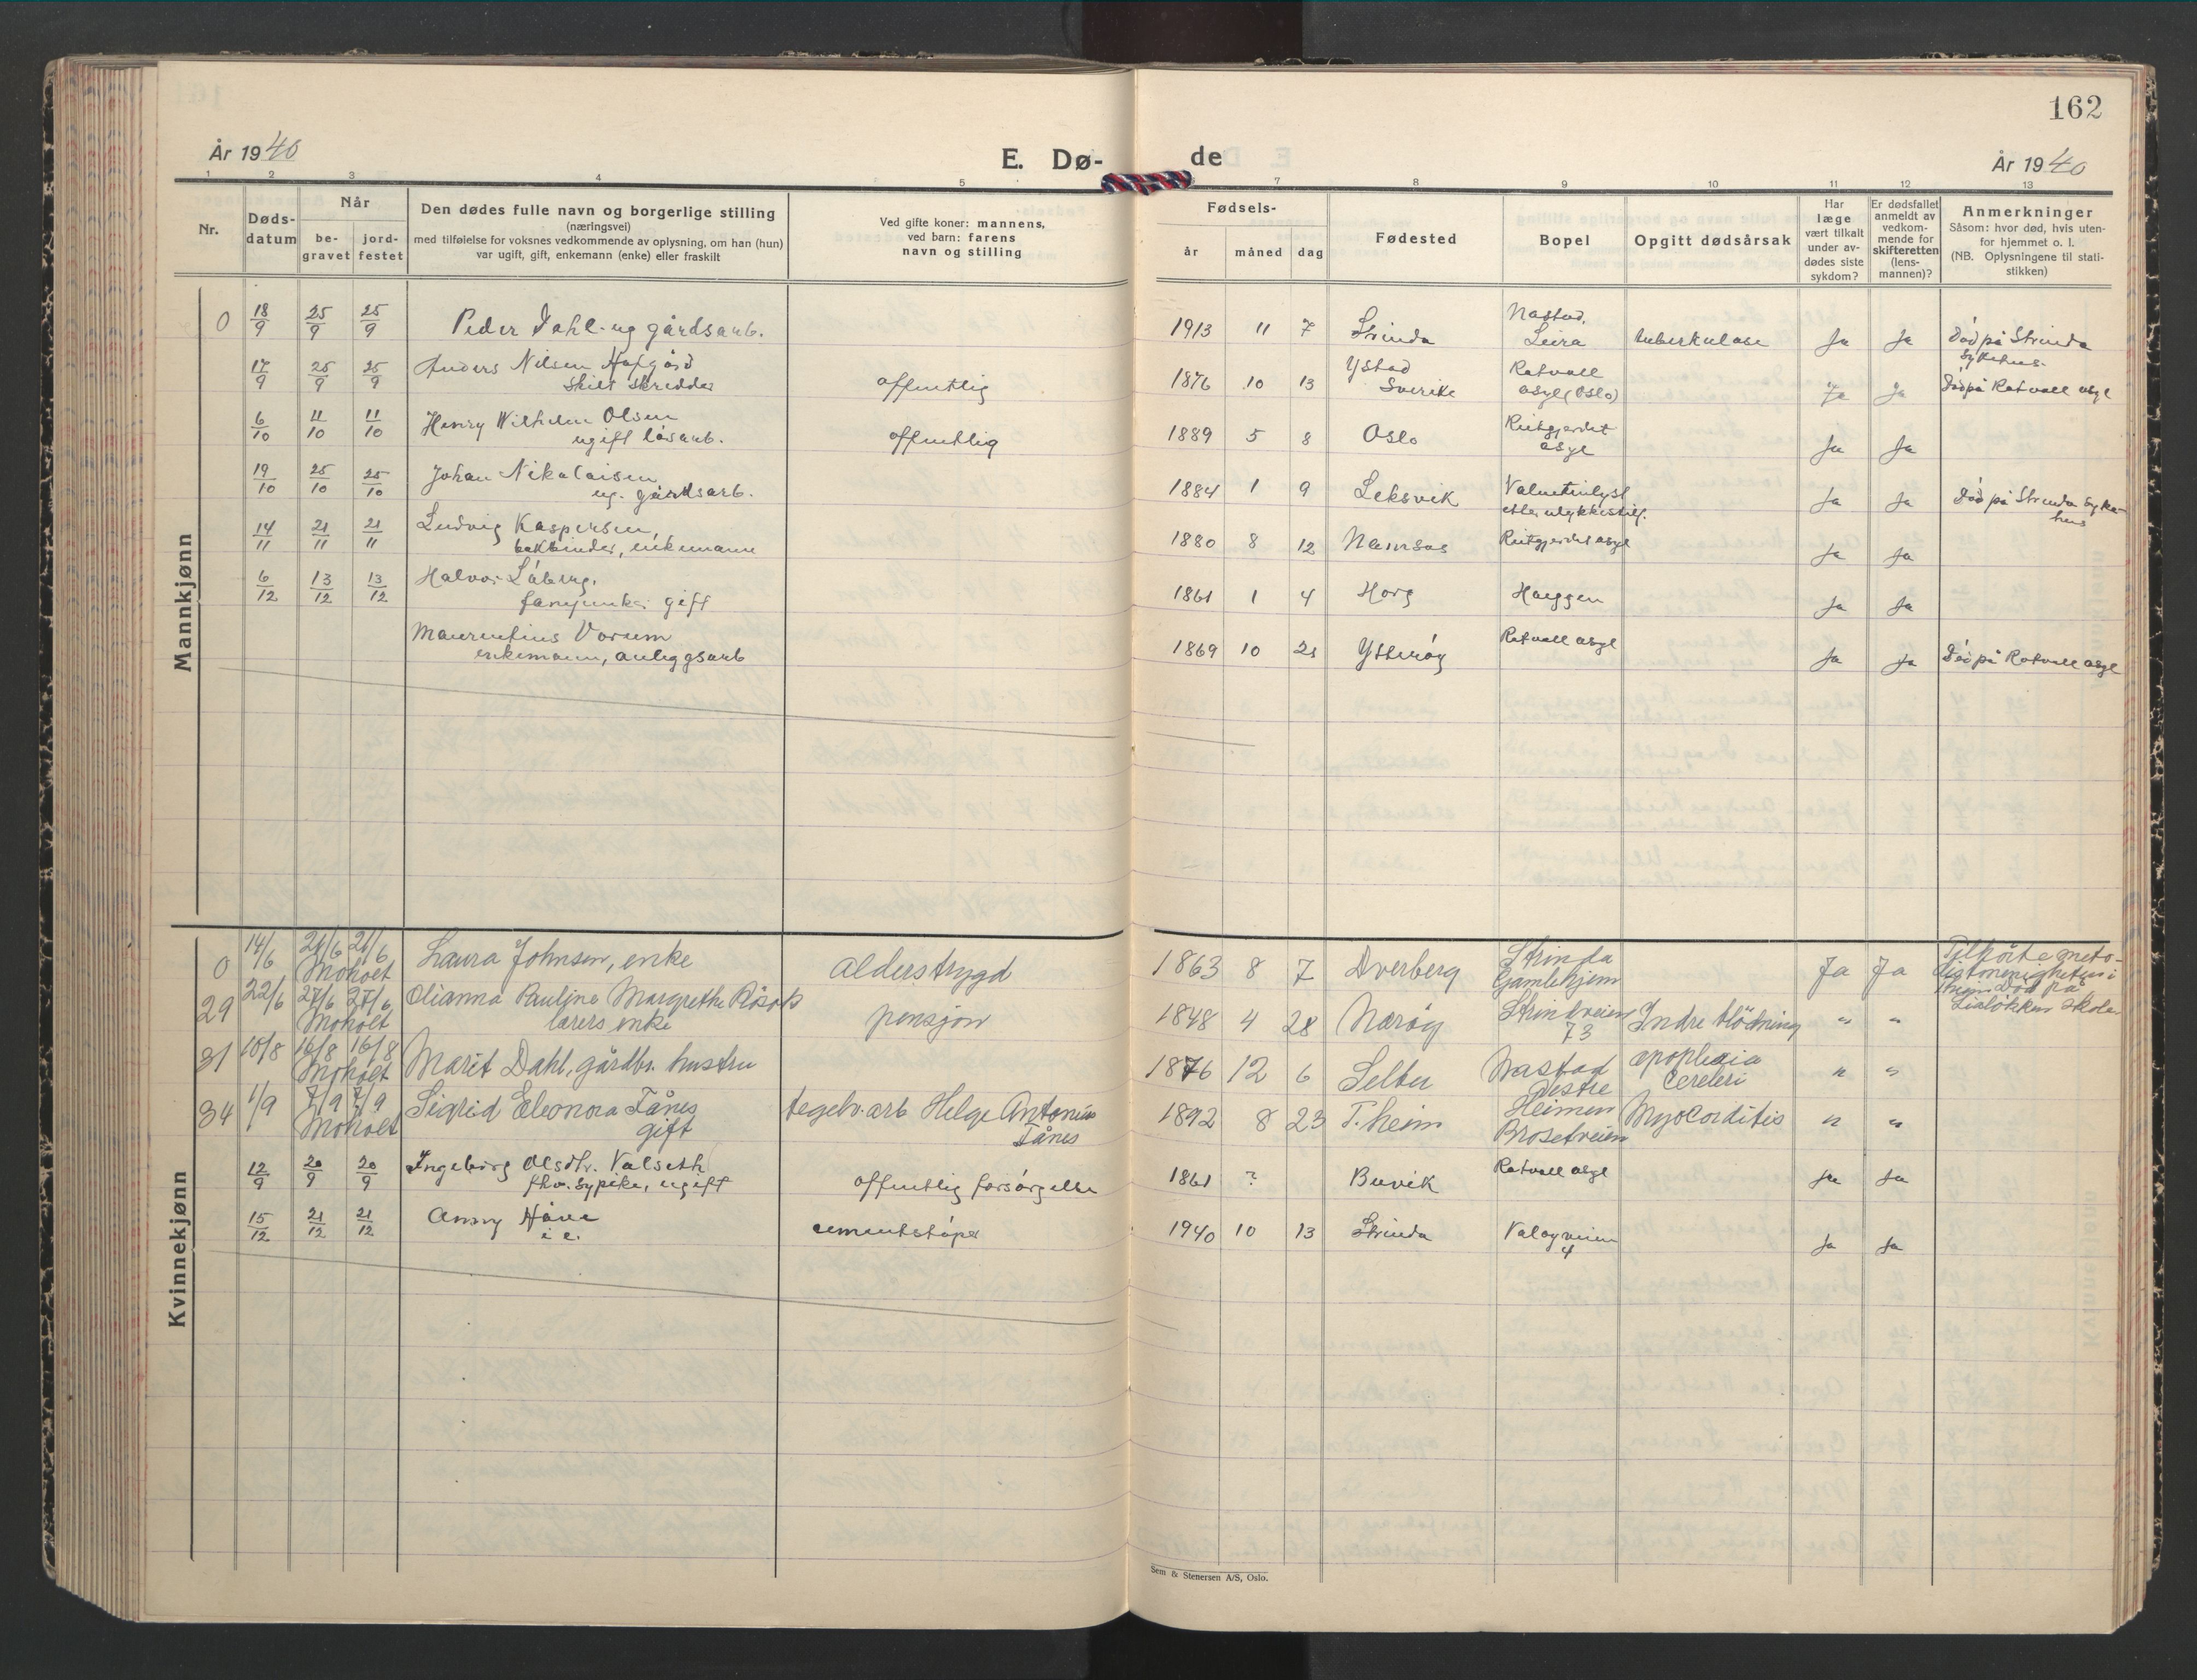 162
År 1940
E. Dø- de
År 1940
1 2 3 4 5 6 7 8 9 10 11 12 13
Nr.
Døds-
datum
Når
be-
gravet
jord-
festet
Den dødes fulle navn og borgerlige stilling
(næringsvei)
med tilføielse for voksnes vedkommende av oplysning, om han (hun)
var ugift, gift, enkemann (enke) eller fraskilt
Ved gifte koner: mannens,
ved barn: farens
navn og stilling
Fødsels-
år måned dag
Fødested
Bopel
Opgitt dødsårsak
Har
læge
vært tilkalt
under av-
dødes siste
sykdom?
Er dødsfallet
anmeldt av
vedkom-
mende for
skifteretten
(lens-
mannen)?
Anmerkninger
Såsom: hvor død, hvis uten-
for hjemmet o. l.
(NB. Oplysningene til stati-
stikken)
Mannkjønn
0 18/9 25/9 25/9 Peder Dahl. ug gårdsarb. 1913 11 7 Strinda Nastad, Leira tuberkulose Ja Ja Død på Strinda
sykehus.
17/9 25/9 25/9 Anders Nilsen Hofgård
skilt skredder offentlig 1876 10 13 Ystad
Sverike Rotvoll
asyl (Oslo) Ja Ja Død på Rotvoll asyl
6/10 11/10 11/10 Henry Wilhelm Olsen
ugift løsarb. offentlig 1889 5 8 Oslo Reitgjerdet
asyl Ja Ja
19/10 25/10 25/10 Johan Nikolaisen
ug. gårdsarb. 1884 1 9 Leksvik Valentinlyst
Ja Ja Død på Strinda syke-
hus
14/11 21/11 21/11 Ludvig Kaspersen,
bokbinder, enkemann 1880 8 12 Namsos Reitgjerdet asyl Ja Ja
6/12 13/12 13/12 Halvor Låberg.
fanejunker gift 1861 1 4 Horg Hoeggen Ja Ja
Maurentius Vorum
enkemann, anleggsarb 1869 10 21 Ytterøy Rotvoll asyl Ja Ja Død på Rotvoll asyl
Kvinnekjønn
0 14/6 21/6 21/6
Moholt Laura Johnsen, enke alderstrygd 1863 8 7 Dverberg Strinda
Gamlehjem Ja Ja Tilhørte meto-
distmenigheten i
T.heim Død på
Lialøkken skole
29 22/6 27/6 27/6
Moholt Olianna Pauline Margrethe
lærers enke pensjon 1848 4 28 Nærøy Strindveien
73 Indre blødning " "
31 10/8 16/8 16/8
Moholt Marit Dahl, gårdbr. hustru 1876 12 6 Selbu Nastad
Vestre apoplexia
cerebri " "
34 1/9 7/9 7/9
Moholt Sigrid Eleonora Tånes
gift teglv. arb Helge Antonius
Tånes 1892 8 23 T.heim Heimen
Brosetveien Myocorditis " "
12/9 20/9 20/9 Ingeborg Olsdtr. Valseth
fhv. sypike, ugift offentlig forsørgelse 1861 ? Buvik Rotvoll asyl Ja Ja
15/12 21/12 21/12 Anny Håve
cementstøper 1940 10 13 Strinda Valøyveien
4 Ja Ja
Sem & Stenersen A/S, Oslo.